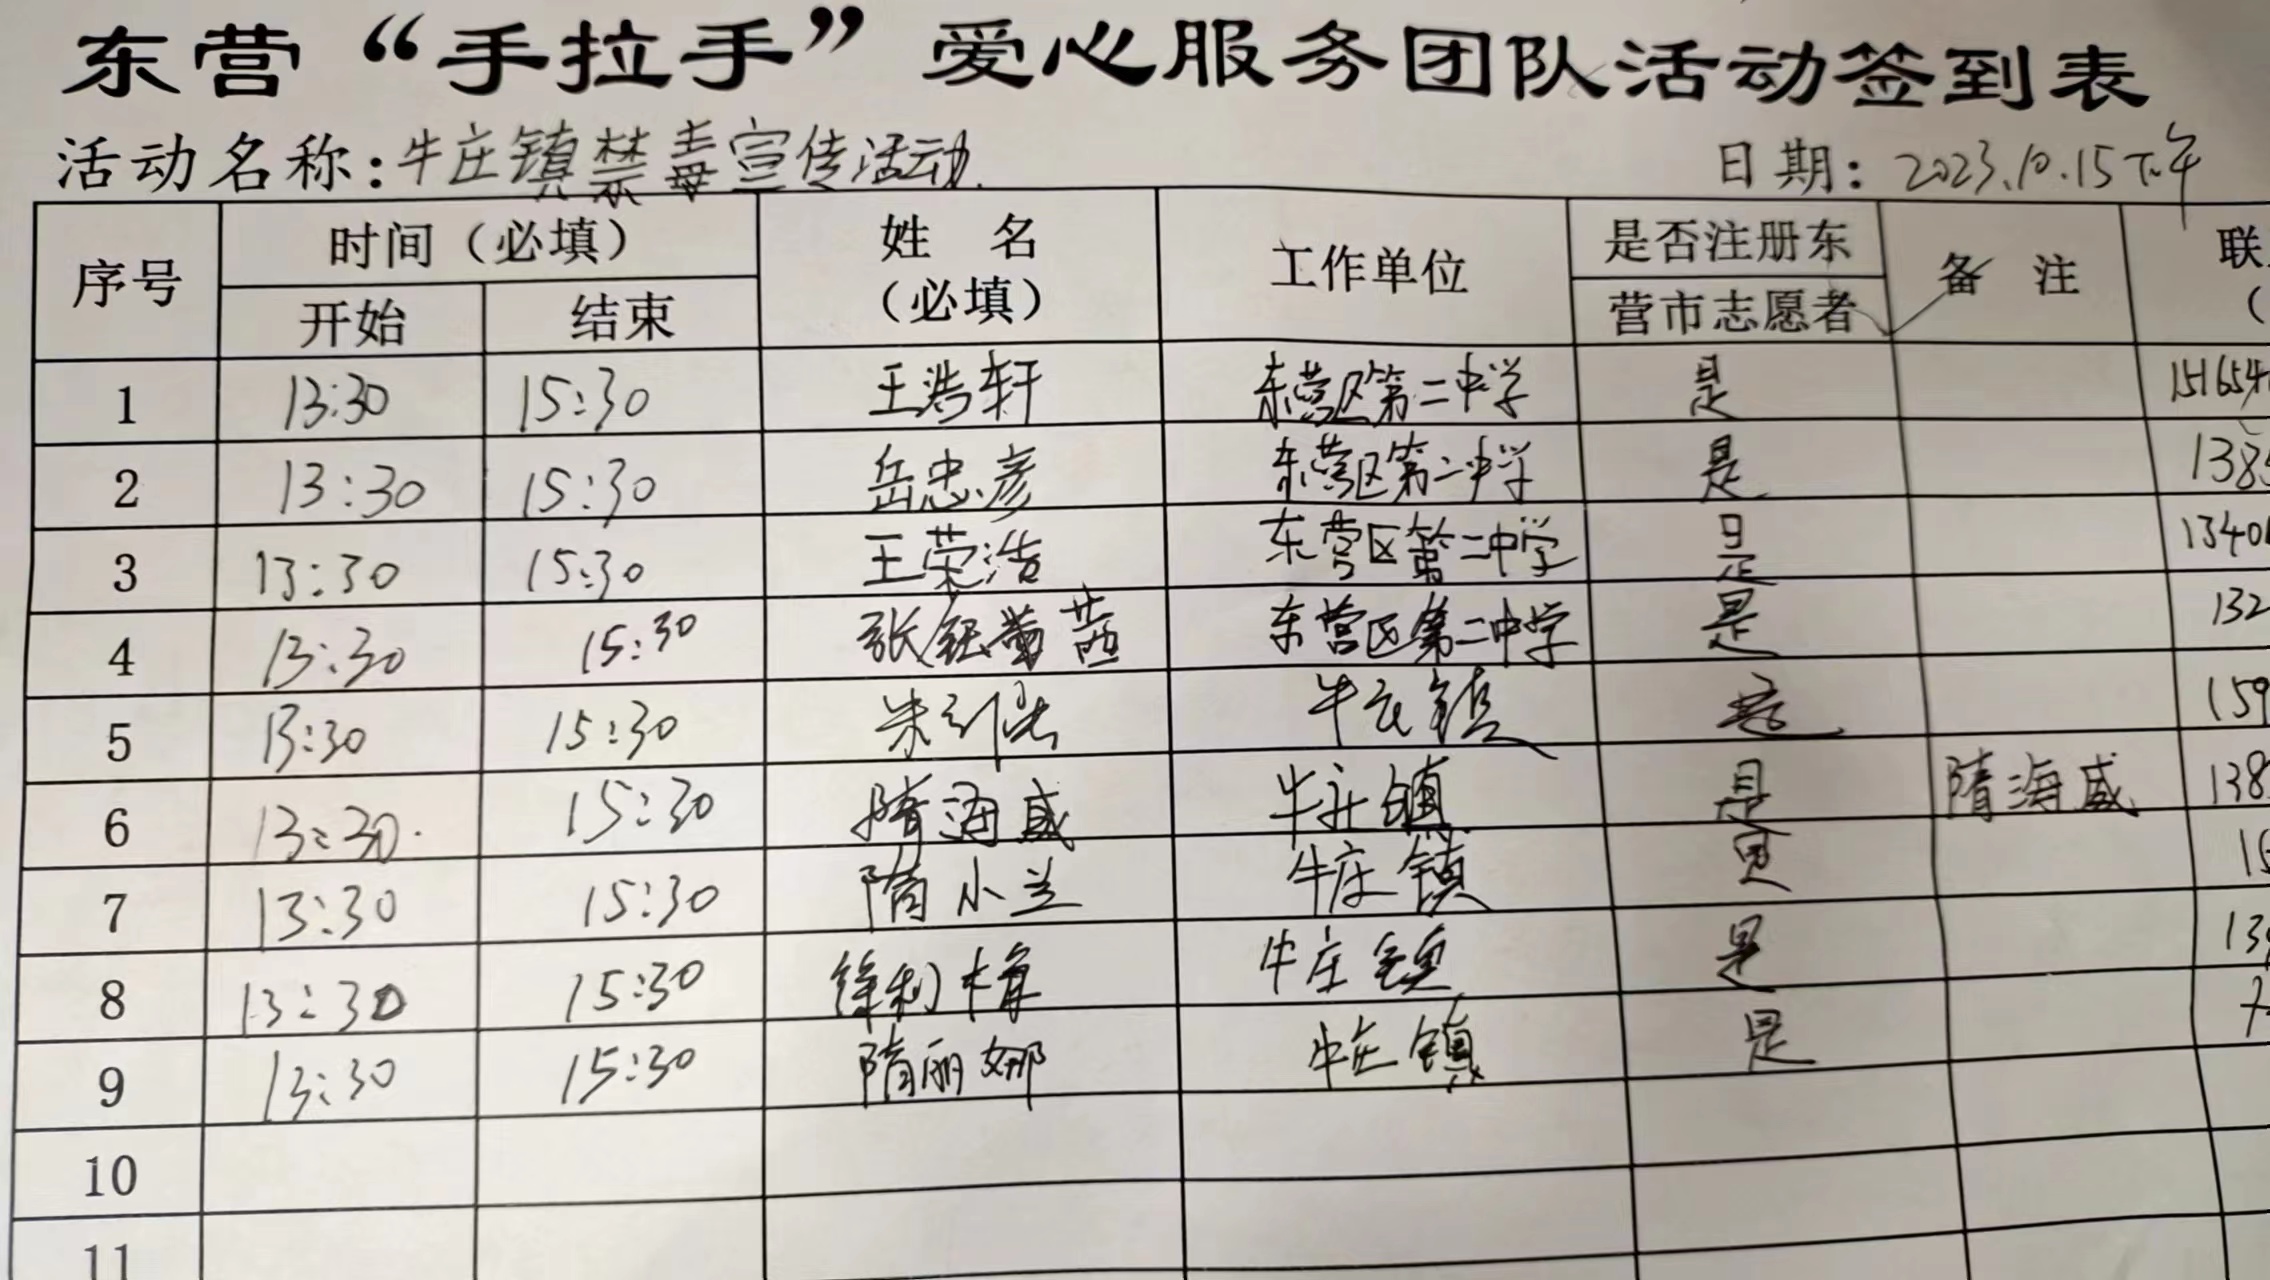 东营“手拉手”爱心服务团队活动签到表
活动名称：牛庄镇禁毒宣传活动 日期：2023.10.15下午
序号 时间（必填） 姓 名（必填） 工作单位 是否注册东营市志愿者 备 注 联
开始 结束
1 13:30 15:30 王浩轩 东营区第二中学 是
2 13:30 15:30 岳忠彦 东营区第二中学 是 138
3 13:30 15:30 王荣浩 东营区第二中学 是 1340
4 13:30 15:30 张钰茜 东营区第二中学 是 132
5 13:30 15:30 牛庄镇 是 159
6 13:30 15:30 隋海威 牛庄镇 是 隋海威 138
7 13:30 15:30 隋小兰 牛庄镇 是 15
8 13:30 15:30 徐利梅 牛庄镇 是 13
9 13:30 15:30 隋丽娜 牛庄镇 是
10
11